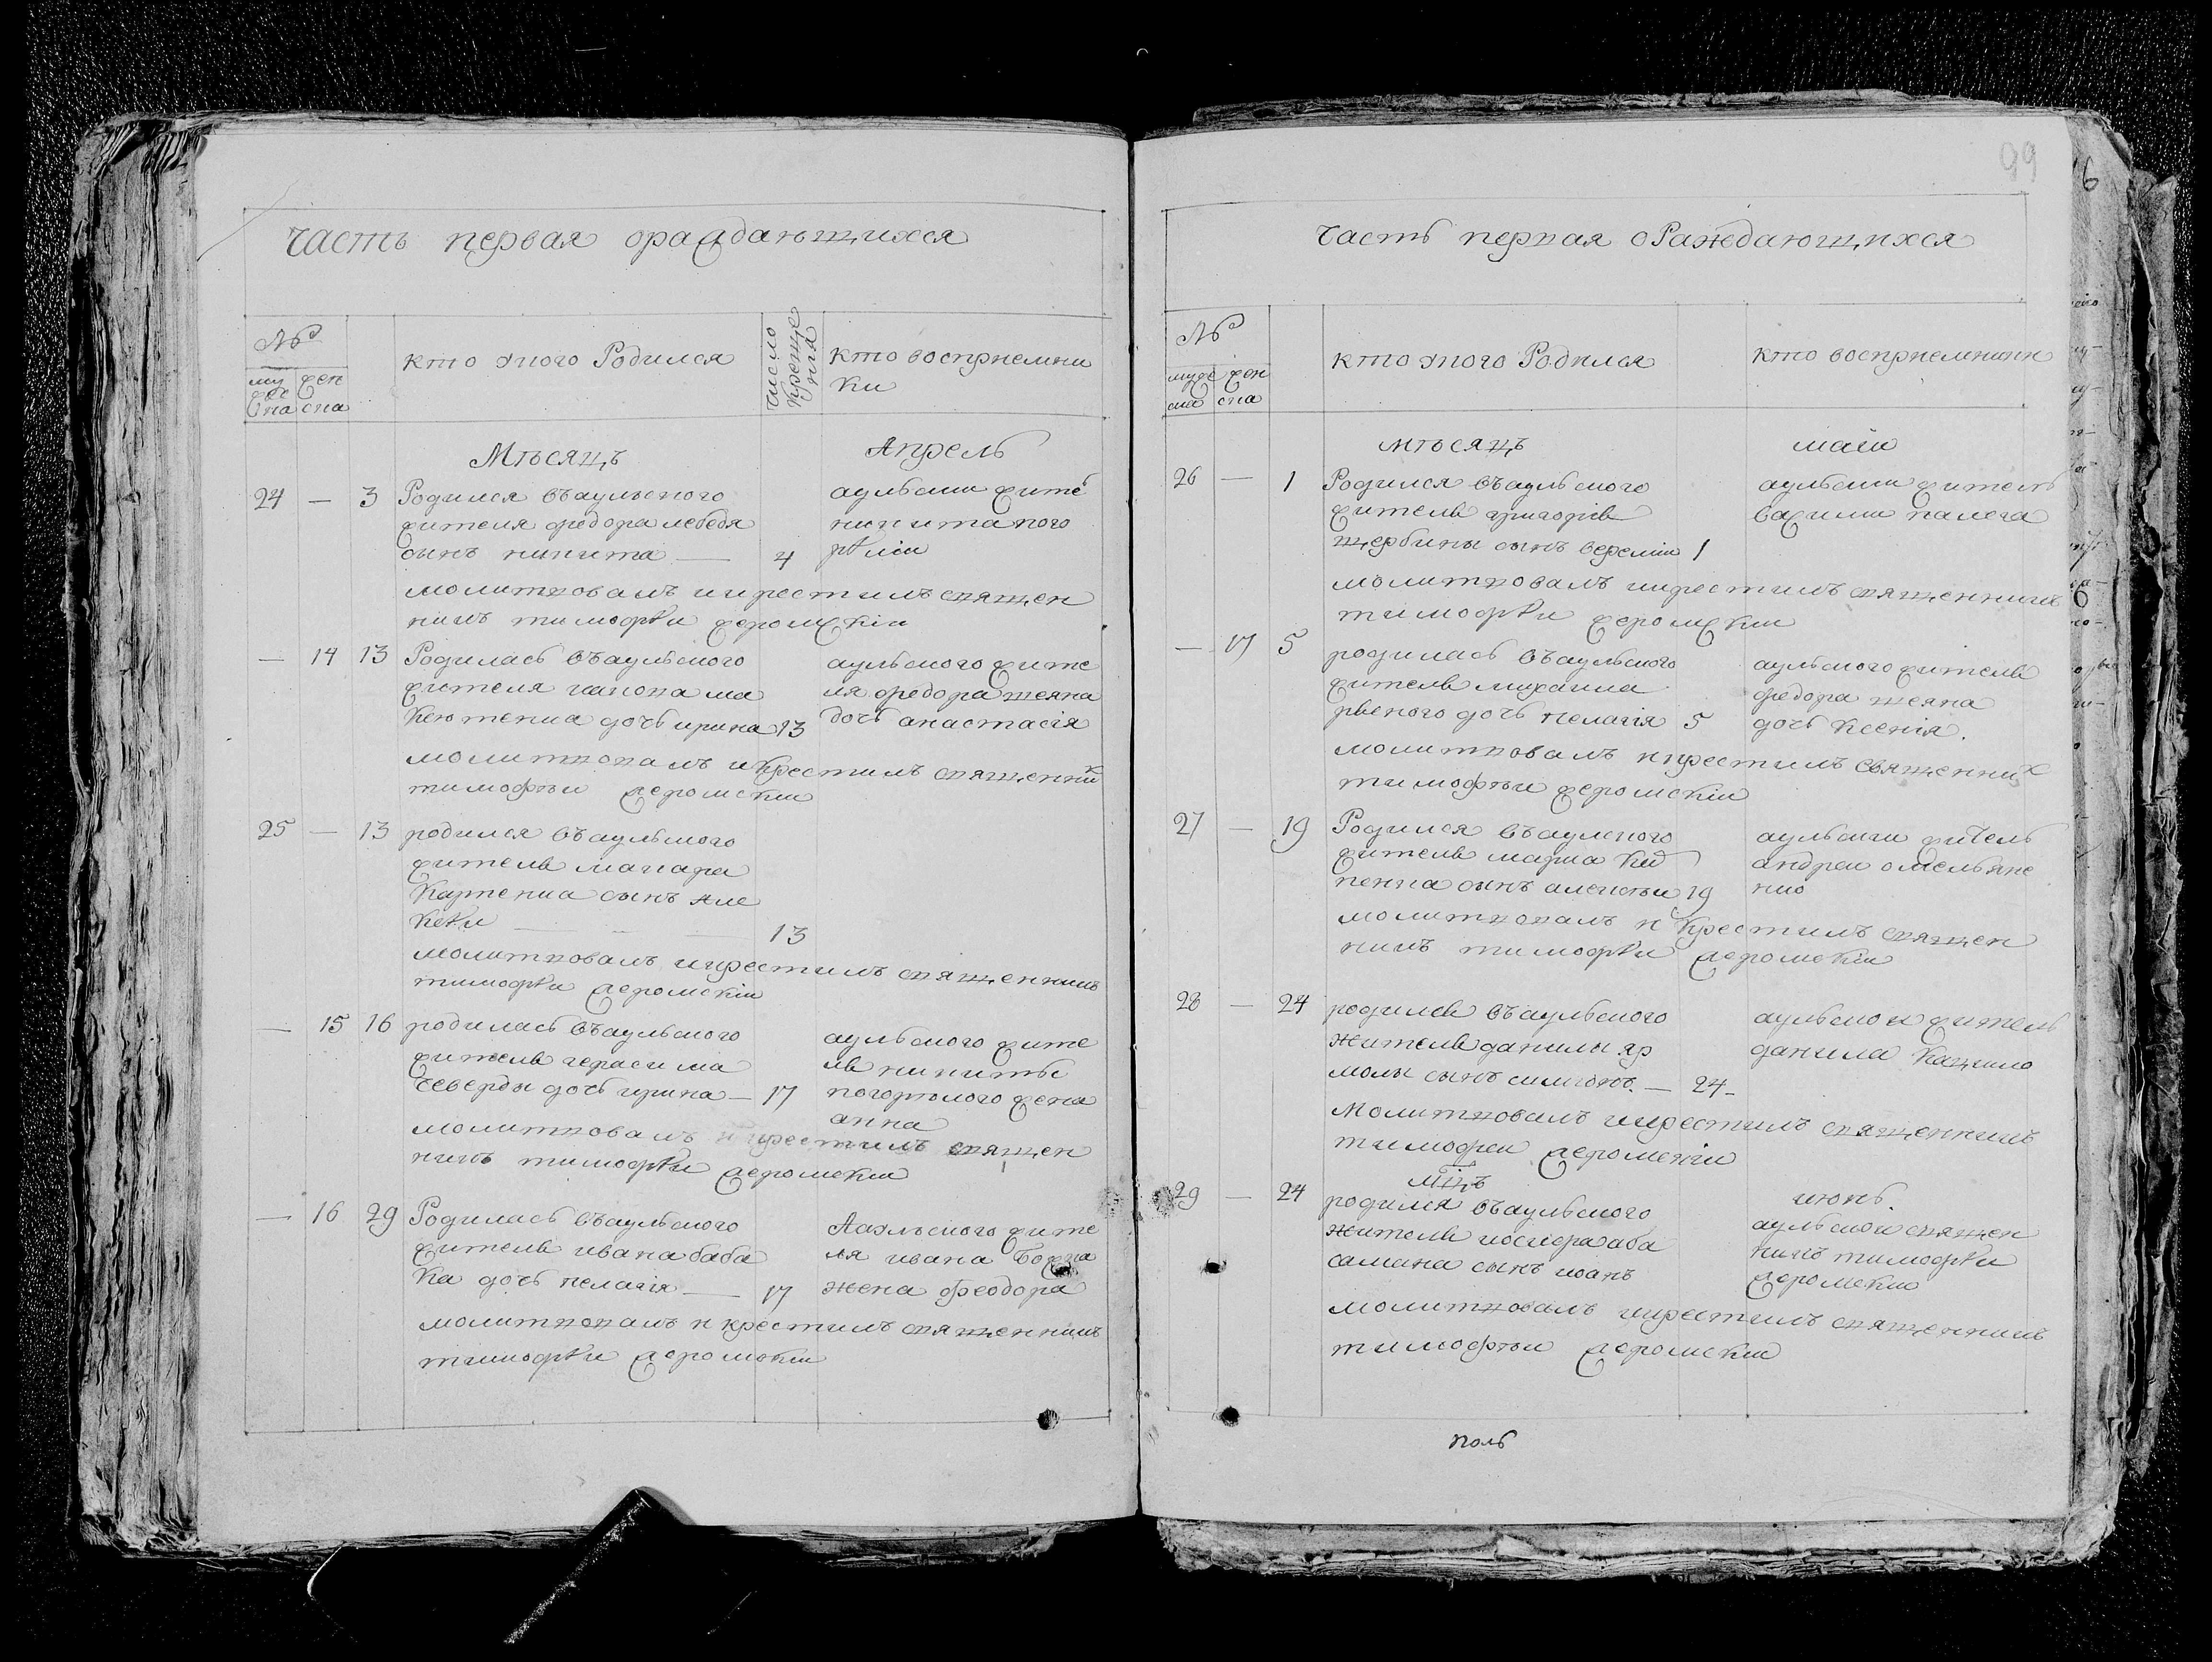 часть первая ораждающихся
№
муж ска
жен ска
кто укого Родился
число крещения
кто восприемни
ки
Мѣсяцъ
Апрель
24 — 3 Родился въаулского
жителя федора лебедя
сынъ никита — 4
аулъски жител
никита
молитвовалъ икрестилъ священ
никъ тимофѣи жеромскіи
— 14 13 Родилась въаульского
жителя
дочь ирина 13
аульского жите
ля федора шеяна
дочь анастасія
молитвовалъ икрестилъ священник
тимофѣи жеромскии
25 — 13 родился въаульского
жителя макара
сынъ але
ксѣи — 13
молитвовалъ икрестилъ священникъ
тимофѣи жеромскіи
— 15 16 родилась въаульского
жителя герасима
чеверды дочь ирина — 17
аульского жите
ля никиты
погорѣлого жена
анна
молитвовалъ икрестилъ священ
никъ тимофѣи жеромскии
— 16 29 Родилась въаульского
жителя ивана баба
ка дочь пелагія — 17
жите
ля ивана
жена феодора
молитвовалъ и крестилъ священникъ
тимофѣи жеромскіи
99
6
часть первая оРаждающихся
№
муже ска
жен ска
кто укого Родился
кто восприемники
мѣсяцъ
маіи
26 — 1 Родился въаульского
жителя григорія
щербины сынъ веремии 1
аульски житель
василии палега
молитвовалъ икрестилъ священникъ
тимофѣи жеромскии
— 17 5 родилась въаульского
жителя михаила
дочь пелагія 5
аульского жителя
федора шеяна
дочь ксенія.
молитвовалъ икрестилъ священник
тимофѣи жеромскіи
27 — 19 Родился въаулского
жителя марка
сынъ алексѣи 19
аульски житель
андреи омельяне
нко
молитвовалъ и крестилъ священ
никъ тимофѣи жеромскіи
28 — 24 родился въаульского
жителя данилы яр
молы сынъ симеонъ. — 24 —
аульскои житель
данила
молитвовалъ икрестилъ священникъ
тимофеи жеромскіи
мцъ
июнь.
29 — 24 родился въаульского
жителя иосифа аба
самана сынъ иванъ
аульскои священ
никъ тимофѣи
жеромскии
молитвовалъ икрестилъ священникъ
тимофѣи жеромскіи